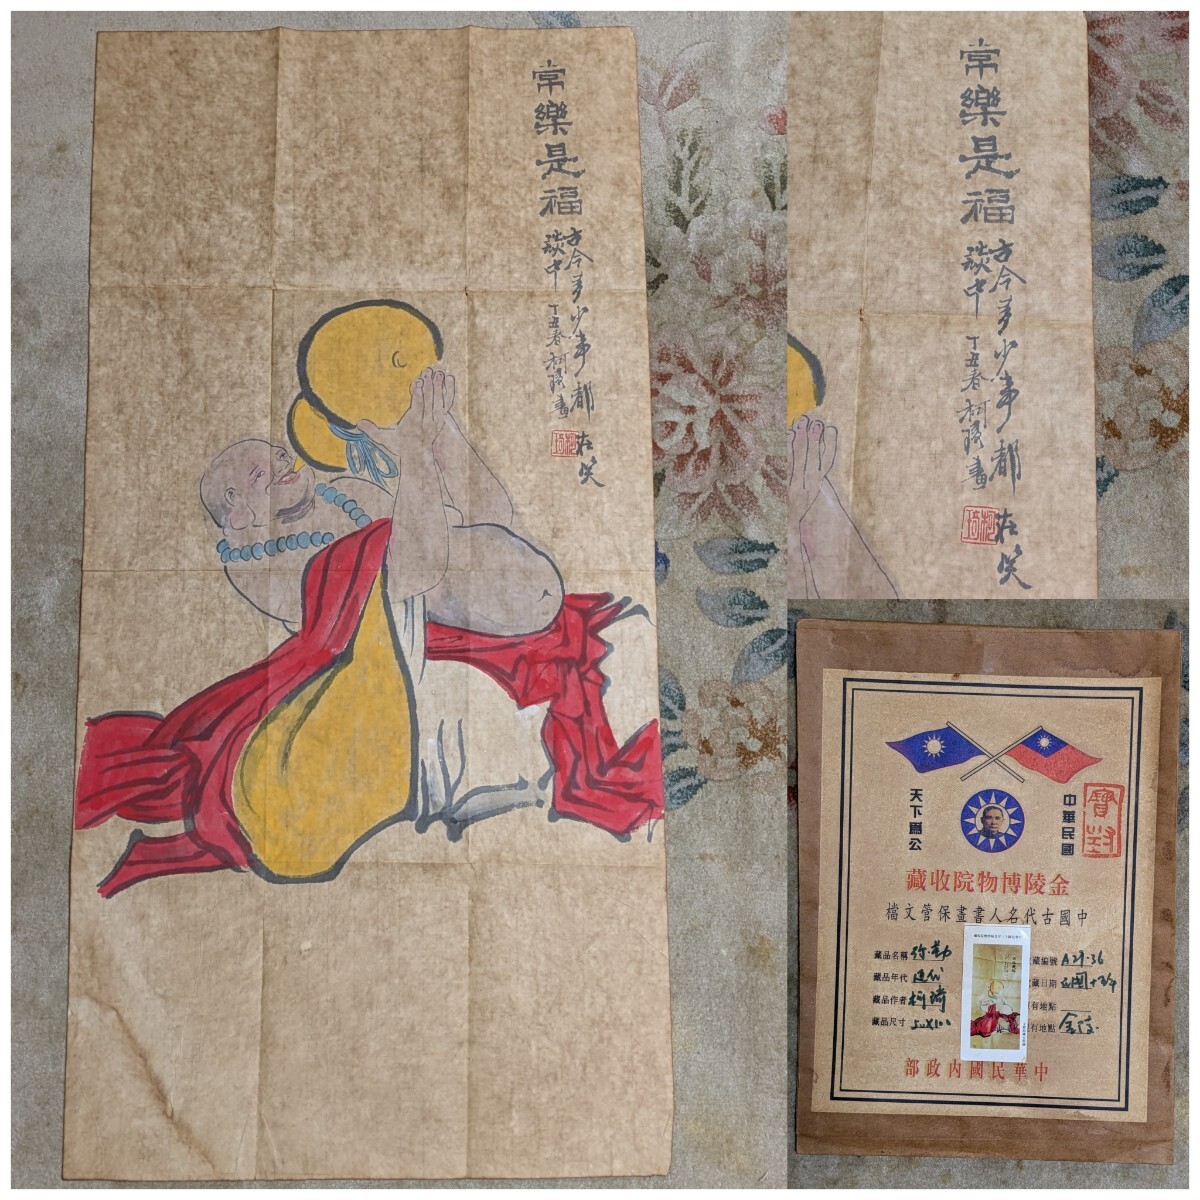 常樂是福
古今多少事都在笑
談中 丁丑春柯琦畫
柯琦
常樂是福
古今多少事都在笑
談中 丁丑春柯琦畫
柯琦
天下爲公
中華民國
金陵博物院收藏
中國古代名人書畫保管文檔
藏品名稱 弥勒
藏品年代 近代
藏品作者 柯琦
藏品尺寸 50X100
藏編號 A29·36
藏日期
有地點
有地點 金陵
中華民國內政部